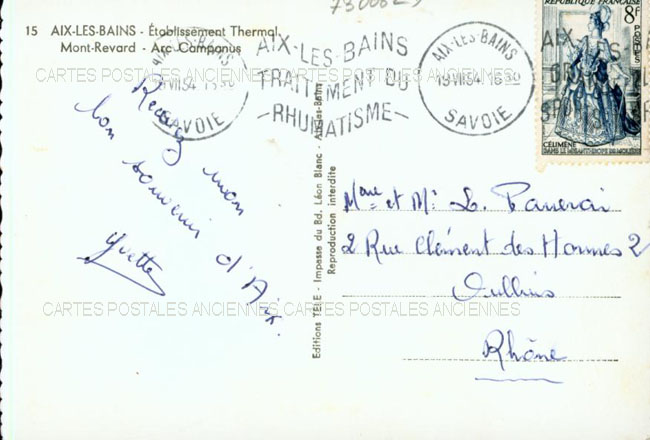 7300829
15 AIX-LES-BAINS - Établissement Thermal
Mont-Revard - Arc Campanus
AIX-LES-BAINS
SAVOIE
AIX-LES-BAINS
TRAITEMENT DU
-RHUMATISME-
AIX-LES-BAINS
15 VII 54. 1630
SAVOIE
RÉPUBLIQUE FRANÇAISE
8F
CÉLIMÈNE
DANS LE MISANTHROPE DE MOLIÈRE
CARTES POSTALES ANCIENNES
CARTES POSTALES ANCIENNES
CARTES POSTALES ANCIENNES
CARTES POSTALES ANCIENNES
Recevez mon
bon souvenir d'Aix.
Yvette
Editions TELE - Impasse du Bd. Léon Blanc - Aix-les-Bains
Reproduction interdite
Mme et Mr L. Panerai
2 Rue Clément des Hormes 2
Oullins
Rhône